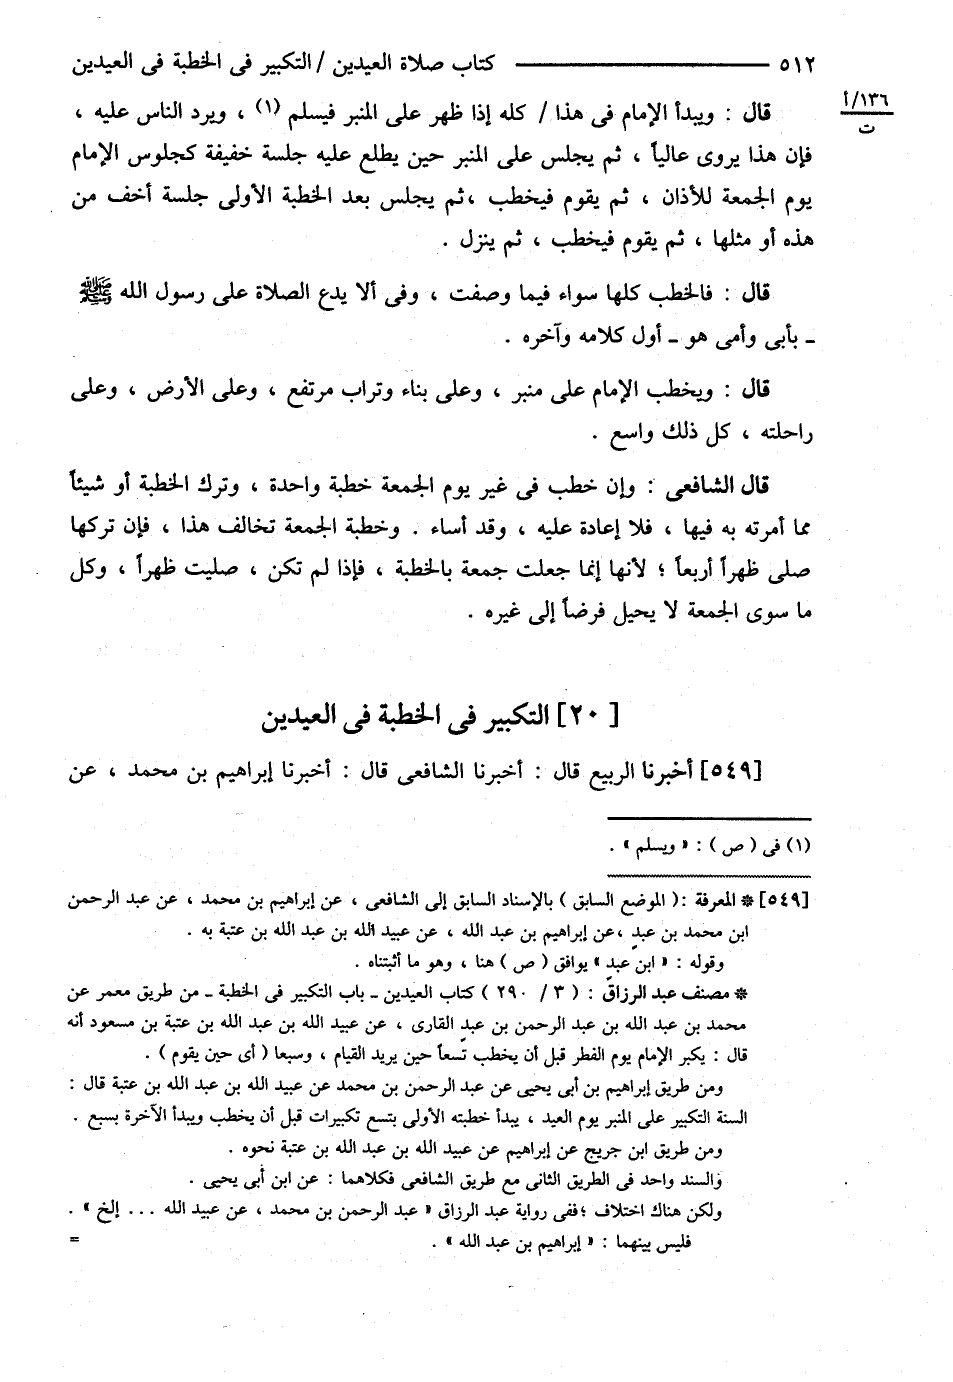 ٥١٢ ـــــــــــــ كتاب صلاة العيدين / التكبير فى الخطبة فى العيدين
١٣٦/أ
ت
قال : ويبدأ الإمام فى هذا / كله إذا ظهر على المنبر فيسلم (١) ، ويرد الناس عليه ،
فإن هذا يروى عالياً ، ثم يجلس على المنبر حين يطلع عليه جلسة خفيفة كجلوس الإمام
يوم الجمعة للأذان ، ثم يقوم فيخطب ،ثم يجلس بعد الخطبة الأولى جلسة أخف من
هذه أو مثلها ، ثم يقوم فيخطب ، ثم ينزل .
قال : فالخطب كلها سواء فيما وصفت ، وفى ألا يدع الصلاة على رسول الله ﷺ
ـ بأبى وأمى هو ـ أول كلامه وآخره .
قال : ويخطب الإمام على منبر ، وعلى بناء وتراب مرتفع ، وعلى الأرض ، وعلى
راحلته ، كل ذلك واسع .
قال الشافعى : وإن خطب فى غير يوم الجمعة خطبة واحدة ، وترك الخطبة أو شيئاً
مما أمرته به فيها ، فلا إعادة عليه ، وقد أساء . وخطبة الجمعة تخالف هذا ، فإن تركها
صلى ظهراً أربعاً ؛ لأنها إنما جعلت جمعة بالخطبة ، فإذا لم تكن ، صليت ظهراً ، وكل
ما سوى الجمعة لا يحيل فرضاً إلى غيره .
[ ٢٠] التكبير فى الخطبة فى العيدين
[٥٤٩] أخبرنا الربيع قال : أخبرنا الشافعى قال : أخبرنا إبراهيم بن محمد ، عن
(١) فى ( ص ) : « ويسلم » .
[٥٤٩] * المعرفة :( الموضع السابق ) بالإسناد السابق إلى الشافعى ، عن إبراهيم بن محمد ، عن عبد الرحمن
ابن محمد بن عبدٍ ،عن إبراهيم بن عبد الله ، عن عبيد الله بن عبد الله بن عتبة به .
وقوله : « ابن عبدٍ » يوافق ( ص ) هنا ، وهو ما أثبتناه .
* مصنف عبد الرزاق : ( ٣ / ٢٩٠ ) كتاب العيدين ـ باب التكبير فى الخطبة ـ من طريق معمر عن
محمد بن عبد الله بن عبد الرحمن بن عبدٍ القارى ، عن عبيد الله بن عبد الله بن عتبة بن مسعود أنه
قال : يكبر الإمام يوم الفطر قبل أن يخطب تسعاً حين يريد القيام ، وسبعا ( أى حين يقوم ) .
ومن طريق إبراهيم بن أبى يحيى عن عبد الرحمن بن محمد عن عبيد الله بن عبد الله بن عتبة قال :
السنة التكبير على المنبر يوم العيد ، يبدأ خطبته الأولى بتسع تكبيرات قبل أن يخطب ويبدأ الآخرة بسبع .
ومن طريق ابن جريج عن إبراهيم عن عبيد الله بن عبد الله بن عتبة نحوه .
والسند واحد فى الطريق الثانى مع طريق الشافعى فكلاهما : عن ابن أبى يحيى .
ولكن هناك اختلاف ؛ففى رواية عبد الرزاق « عبد الرحمن بن محمد ، عن عبيد الله ... إلخ » .
فليس بينهما : « إبراهيم بن عبد الله » . =